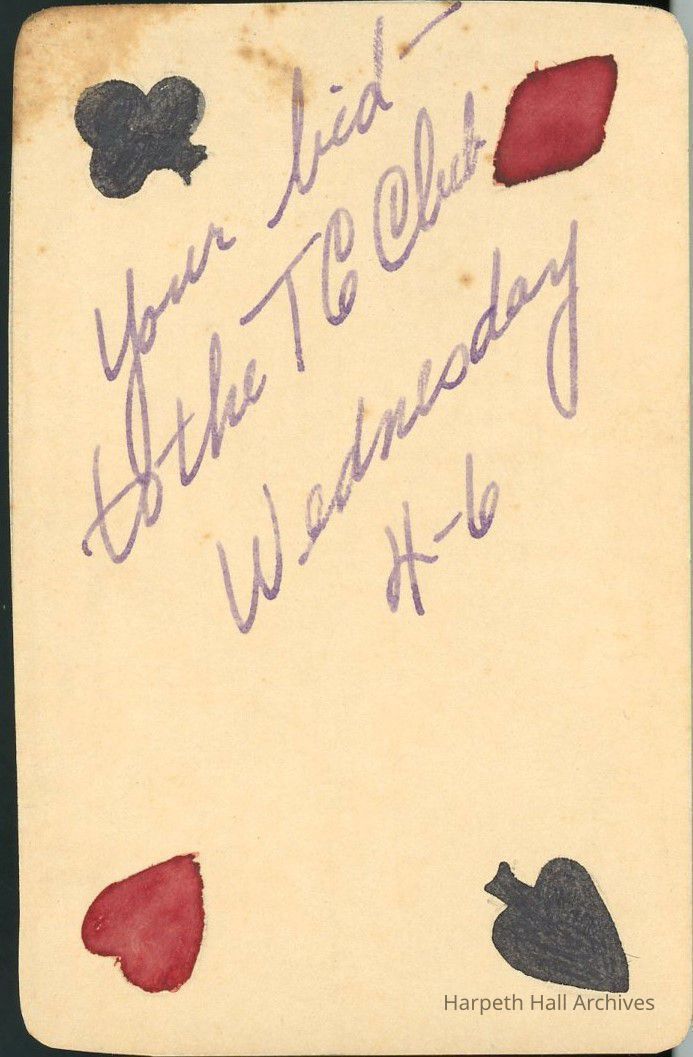 Your bid—
to the TC Club
Wednesday
4-6
Harpeth Hall Archives